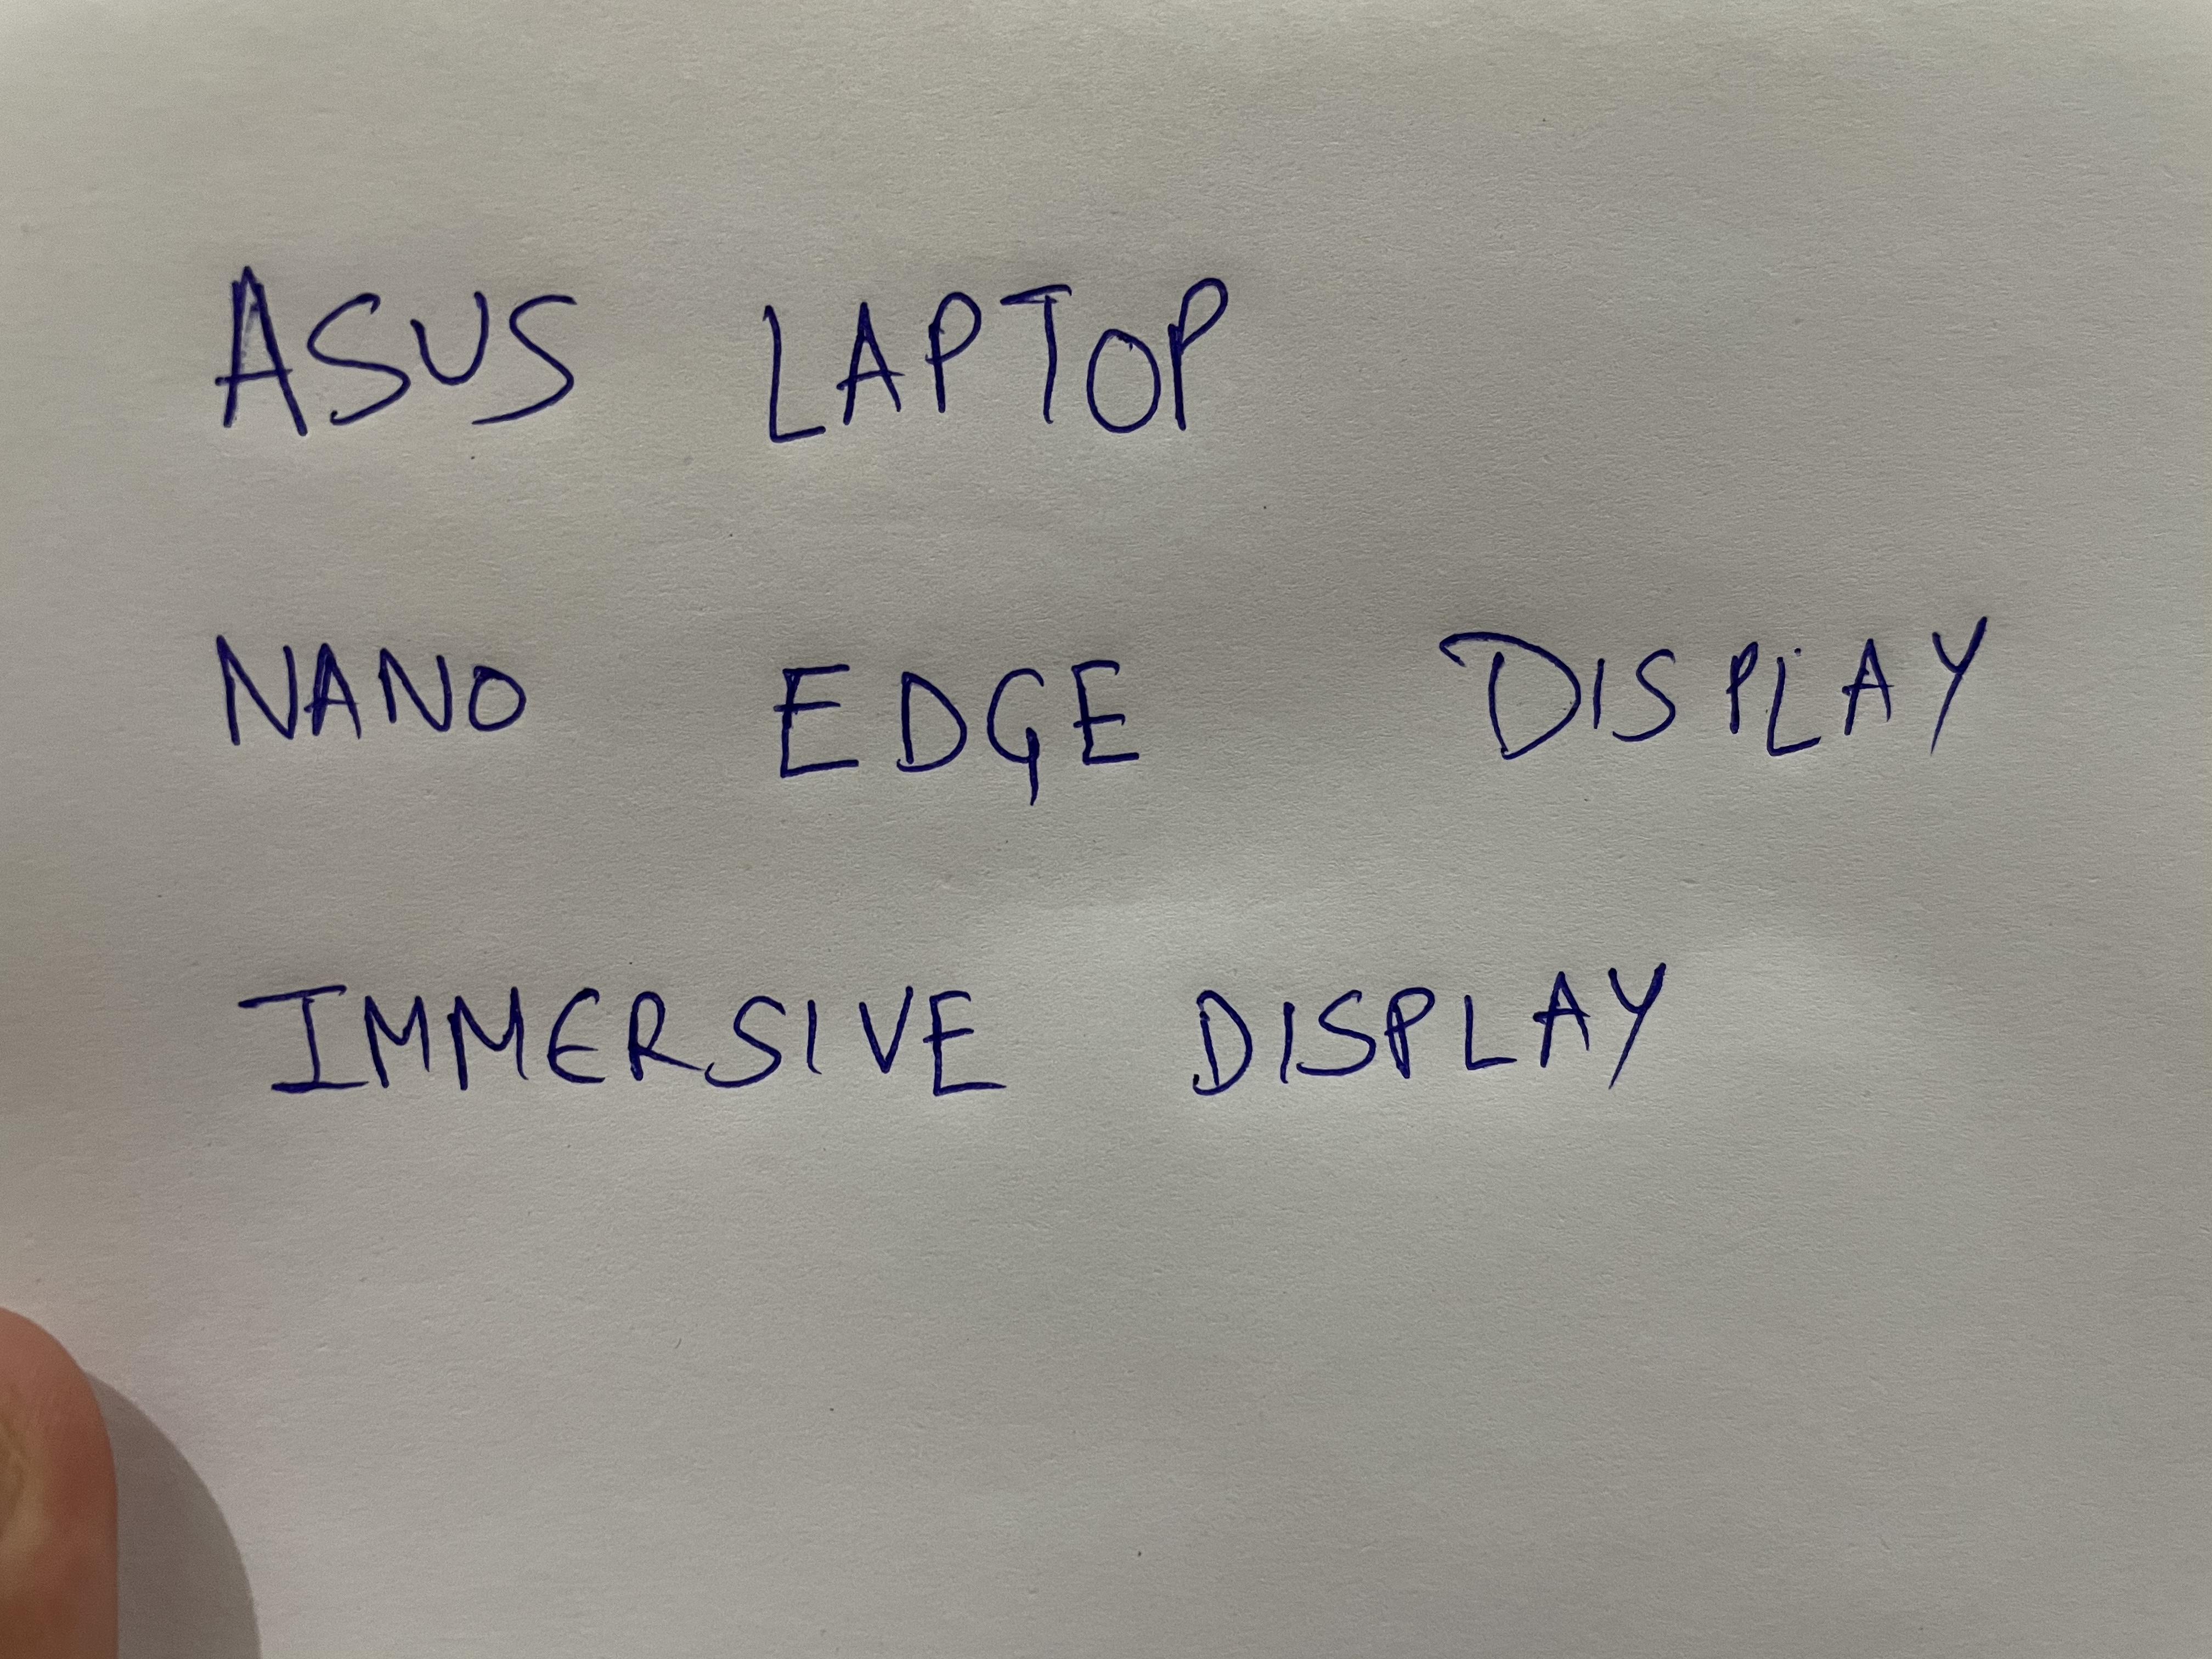 ASUS LAPTOP
NANO EDGE DISPLAY
IMMERSIVE DISPLAY